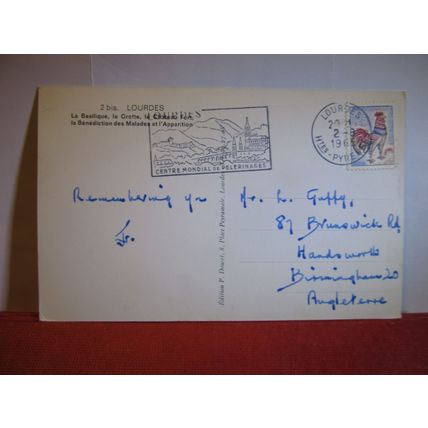 2 bis. LOURDES
La Basilique, la Grotte, le Château Fort,
la Bénédiction des Malades et l'Apparition
LOURDES
CENTRE MONDIAL DE PELERINAGES
LOURDES
2-9
196
HTES-PYRÉNÉES
Edition P. Doucet, 8, Place Peyramale, Lourdes
Remembering you
Fr.
Mr. L. Guffy,
87 Brunswick Rd
Handsworth
Birmingham 20
Angleterre